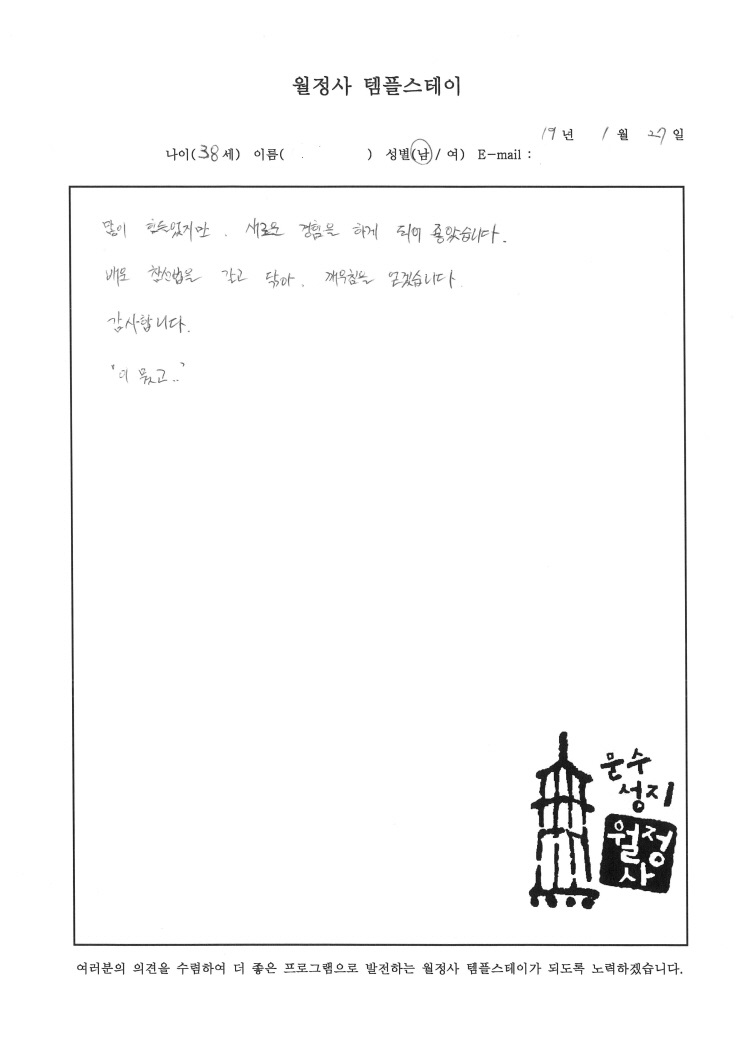 월정사 템플스테이
19년 1월 27일
나이(38세) 이름( ) 성별(남/여) E-mail :
많이 힘들었지만, 새로운 경험을 하게 되어 좋았습니다.
배운 참선법을 갈고 닦아, 깨우침을 얻겠습니다.
감사합니다.
"이 뭣고.."
문수
성지
월정
사
여러분의 의견을 수렴하여 더 좋은 프로그램으로 발전하는 월정사 템플스테이가 되도록 노력하겠습니다.